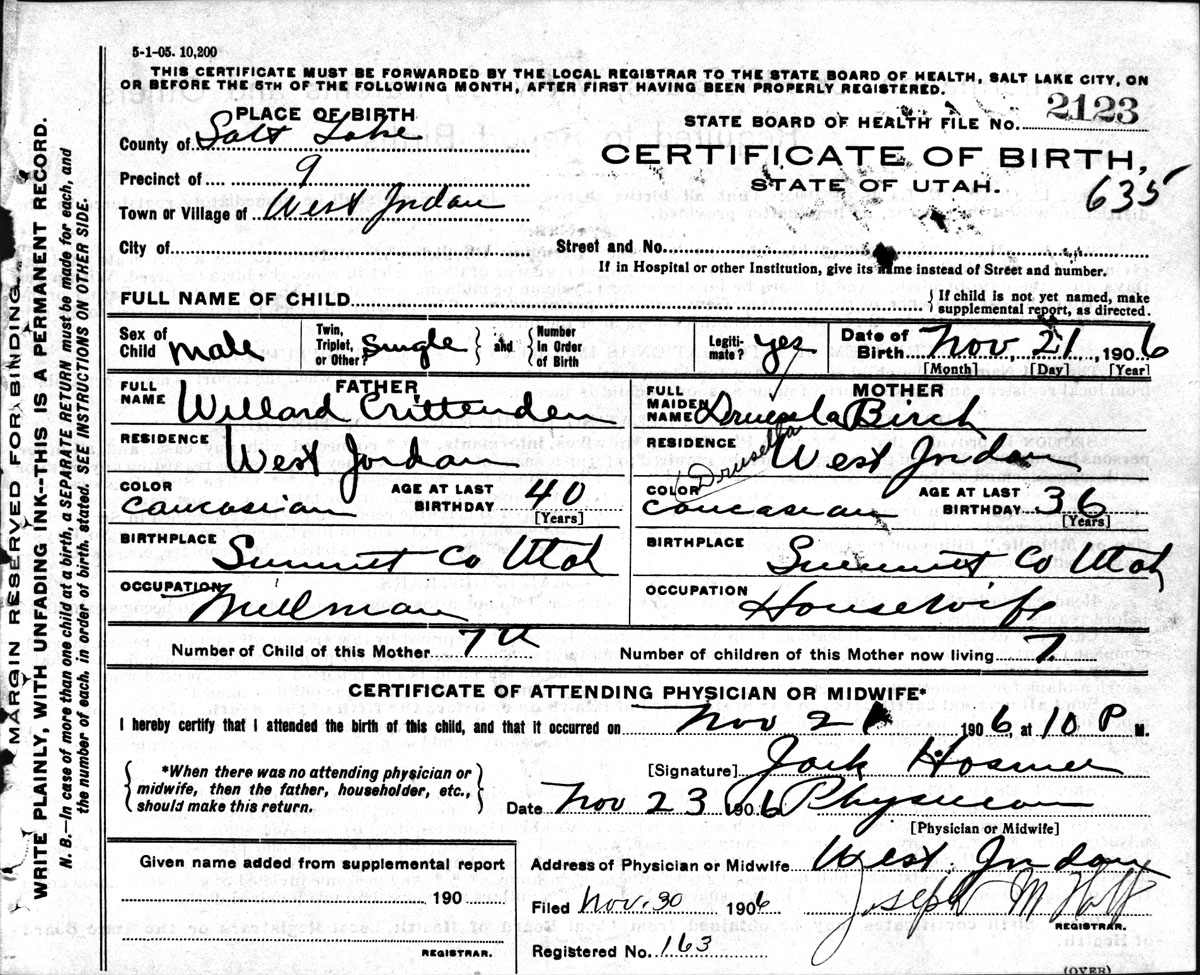 5-1-05. 10,200
THIS CERTIFICATE MUST BE FORWARDED BY THE LOCAL REGISTRAR TO THE STATE BOARD OF HEALTH, SALT LAKE CITY, ON
OR BEFORE THE 5TH OF THE FOLLOWING MONTH, AFTER FIRST HAVING BEEN PROPERLY REGISTERED.
PLACE OF BIRTH
STATE BOARD OF HEALTH FILE No. 2123
County of Salt Lake
CERTIFICATE OF BIRTH,
Precinct of 9
STATE OF UTAH.
635
Town or Village of West Jordan
City of Street and No.
If in Hospital or other Institution, give its name instead of Street and number.
FULL NAME OF CHILD { If child is not yet named, make
supplemental report, as directed.
Sex of Child male Twin, Triplet, or Other? Single } and { Number in Order of Birth Legiti-mate? yes Date of Birth Nov 21, 1906
[Month] [Day] [Year]
FATHER
FULL NAME Willard Crittenden
MOTHER
FULL MAIDEN NAME Drucela Birch
(Drusella
RESIDENCE West Jordan
RESIDENCE West Jordan
COLOR Caucasian AGE AT LAST BIRTHDAY 40 [Years]
COLOR Caucasian AGE AT LAST BIRTHDAY 36 [Years]
BIRTHPLACE Summit Co Utah
BIRTHPLACE Summit Co Utah
OCCUPATION Millman
OCCUPATION Housewife
Number of Child of this Mother 7th Number of children of this Mother now living 7.
CERTIFICATE OF ATTENDING PHYSICIAN OR MIDWIFE*
I hereby certify that I attended the birth of this child, and that it occurred on Nov 21 1906, at 10 P M.
{ *When there was no attending physician or
midwife, then the father, householder, etc.,
should make this return. }
[Signature] Jack Hosmer
Date Nov 23 1906 Physician
[Physician or Midwife]
Given name added from supplemental report
190
REGISTRAR.
Address of Physician or Midwife West Jordan
Filed Nov. 30 1906 Joseph M Holt
REGISTRAR.
Registered No. 163
(OVER)
MARGIN RESERVED FOR BINDING.
WRITE PLAINLY, WITH UNFADING INK--THIS IS A PERMANENT RECORD.
N. B.—In case of more than one child at a birth, a SEPARATE RETURN must be made for each, and
the number of each, in order of birth, stated. SEE INSTRUCTIONS ON OTHER SIDE.